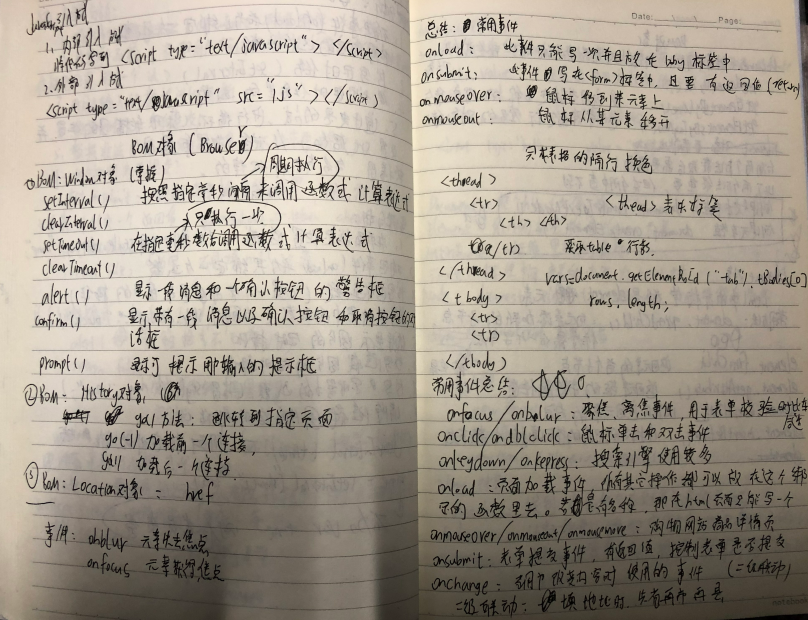 JavaScript引入方式
1、内部引入方式
<script type="text/javascript"> </script>
2.外部引入方式
<script type="text/javascript" src="1.js"></script>
BOM对象 (Browser)
① BOM: Window对象
周期执行
setInterval() 按照指定 来调用函数或计算表达式
clearInterval()
只执行一次
setTimeout() 在指定毫秒数后调用函数或计算表达式
clearTimeout()
alert() 显示一段消息和一个确认按钮的警告框
confirm() 显示带有一段消息以及确认按钮和取消按钮的对
话框
prompt() 显示可提示用户输入的提示框
② BOM: History对象
go()方法: 跳转到指定页面
go(-1) 加载前一个连接
go(1) 加载后一个连接
③ BOM: Location对象: href
事件: onblur 元素失去焦点
onfocus 元素获得焦点
Date: Page:
总结: 常用事件
onload: 此事件只能写一次并且放在body标签中
onsubmit: 此事件写在<form>标签中, 且要有返回值(return)
onmouseover: 鼠标移到某元素上
onmouseout: 鼠标从某元素移开
表格的隔行换色
<thead>
<tr> <thead>表头标签
<th> </th>
</tr> table 行数
</thead> var s=document.getElementById("tab").tBodies[0]
<tbody> rows.length;
<tr>
<tr>
</tbody>
常用事件总结:
onfocus/onblur: 聚焦, 离焦事件, 用于表单校验
onclick/ondblclick: 鼠标单击和双击事件
onkeydown/onkepress: 搜索引擎使用较多
onload: 页面加载事件, 所有其它操作都可以放在这个绑
定的函数里去。 html页面只能写一个
onmouseover/onmouseout/onmousemove: 购物网站商品详情页
onsubmit: 表单提交事件, 有返回值, 控制表单是否提交
onchange: 用户改变内容时使用的事件 (二级联动)
二级联动: 填地址时, 先有 再